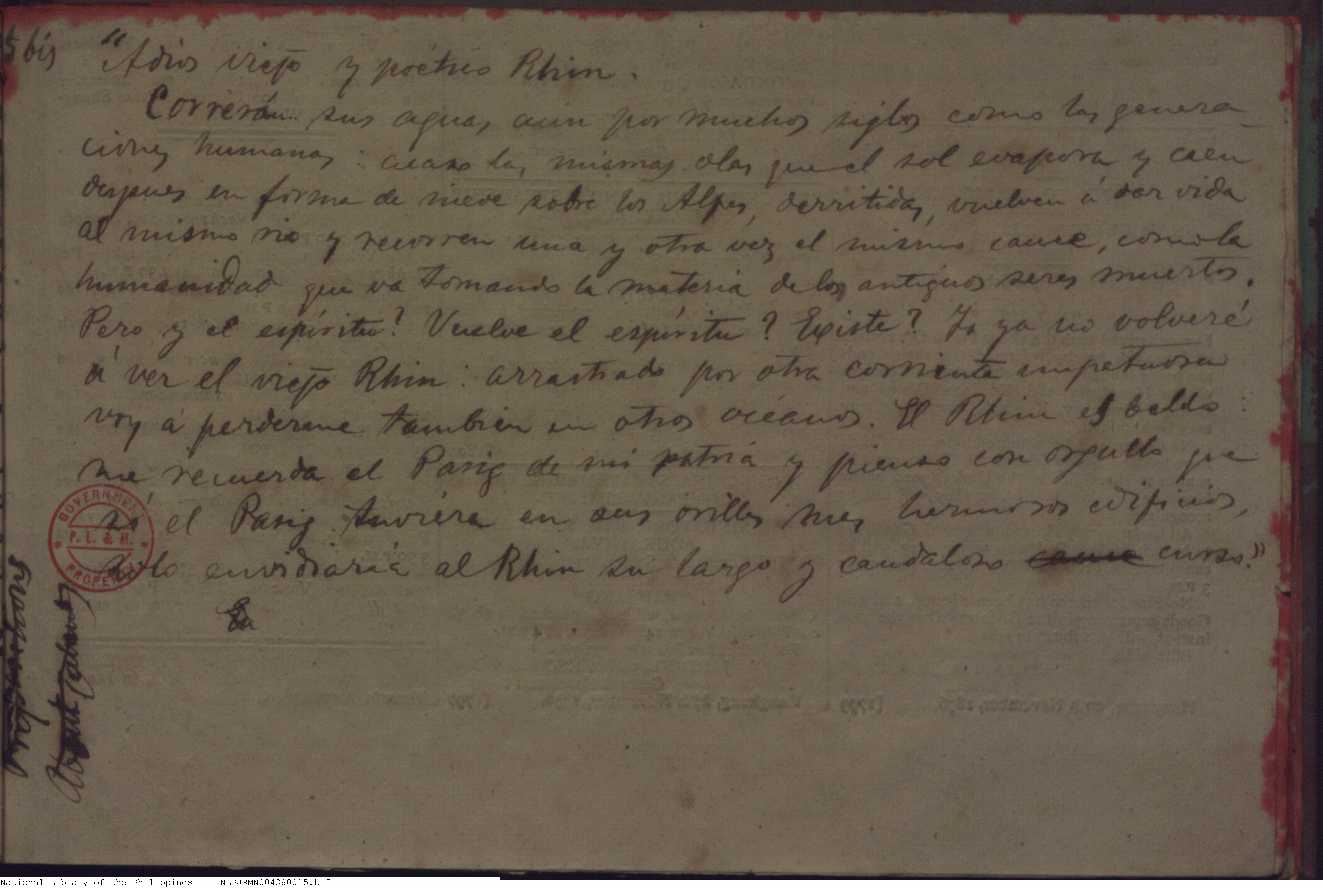 5 bis
"Adios viejo y poético Rhin.
Correrán sus aguas aun por muchos siglos como las genera-
ciones humanas: acaso las mismas olas que el sol evapora y caen
despues en forma de nieve sobre los Alpes, derritidas, vuelven á dar vida
al mismo rio y recorren una y otra vez el mismo cauce, como la
humanidad que va tomando la materia de los antiguos seres muertos.
Pero y el espíritu? Vuelve el espíritu? Existe? Yo ya no volveré
á ver el viejo Rhin: arrastrado por otra corriente impetuosa
voy á perderme tambien en otros océanos. El Rhin es bello:
me recuerda el Pasig de mi patria y pienso con orgullo que
si el Pasig tuviera en sus orillas mas hermosos edificios,
solo envidiaría al Rhin su largo y caudaloso cauce curso."
GOVERNMENT
P. L. & M.
PROPERTY
National Library of the Philippines